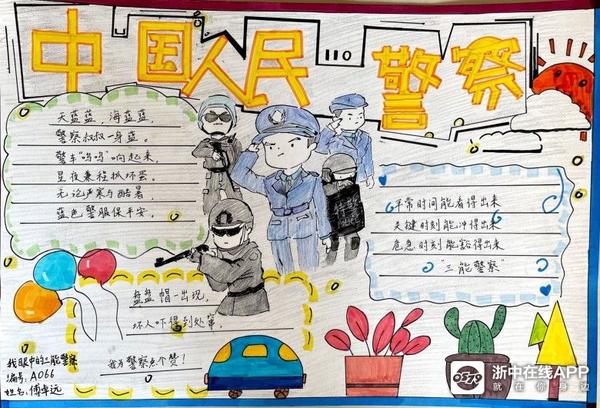 中国人民110警察
天蓝蓝,海蓝蓝,
警察叔叔一身蓝。
警车"呜呜"响起来,
星夜兼程抓坏蛋。
无论严寒与酷暑,
蓝色警服保平安。
平常时间能看得出来
关键时刻能冲得出来
危急时刻能豁得出来
"三能警察"
盘盘帽一出现,
坏人吓得到处窜,
我为警察点个赞!
我眼中的三能警察
编号:A066
姓名:傅
浙中在线APP
就在你身边